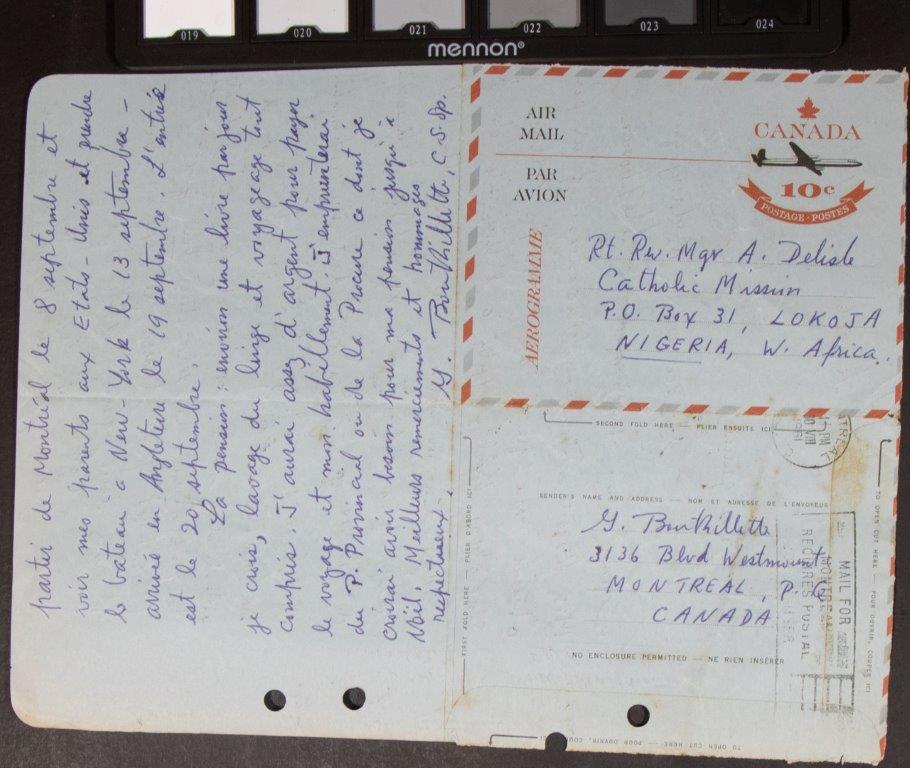 019 020 021 022 023 024
mennon®
partir de Montréal le 8 septembre et
voir mes parents aux Etats-Unis et prendre
le bateau à New-York le 13 septembre -
arrivée en Angleterre le 19 septembre. L'entrée
est le 20 septembre.
La pension: environ une livre par jour
je crois, lavage du linge et voyageage tout
compris. J'aurai assez d'argent pour payer
le voyage et mon habillement. J'emprunterai
du P. Provincial ou de la Procure ce dont je
croirai avoir besoin pour ma pension jusqu'à
Noël. Meilleurs remerciements et hommages
respectueux.
G. Bouthillette, C.S.Sp.
AIR
MAIL
PAR
AVION
AEROGRAMME
CANADA
10c
POSTAGE · POSTES
Rt. Rev. Mgr A. Delisle
Catholic Mission
P.O. Box 31, LOKOJA
NIGERIA, W. Africa.
SECOND FOLD HERE — PLIER ENSUITE ICI
FIRST FOLD HERE — PLIER D'ABORD ICI
TO OPEN CUT HERE — POUR OUVRIR, COUPEZ ICI
SENDER'S NAME AND ADDRESS — NOM ET ADRESSE DE L'ENVOYEUR
G. Bouthillette
3136 Blvd Westmount
MONTREAL, P.Q.
CANADA
NO ENCLOSURE PERMITTED — NE RIEN INSÉRER
MAIL FOR
MONTREAL
POSTAL
TO OPEN CUT HERE — POUR OUVRIR, COU